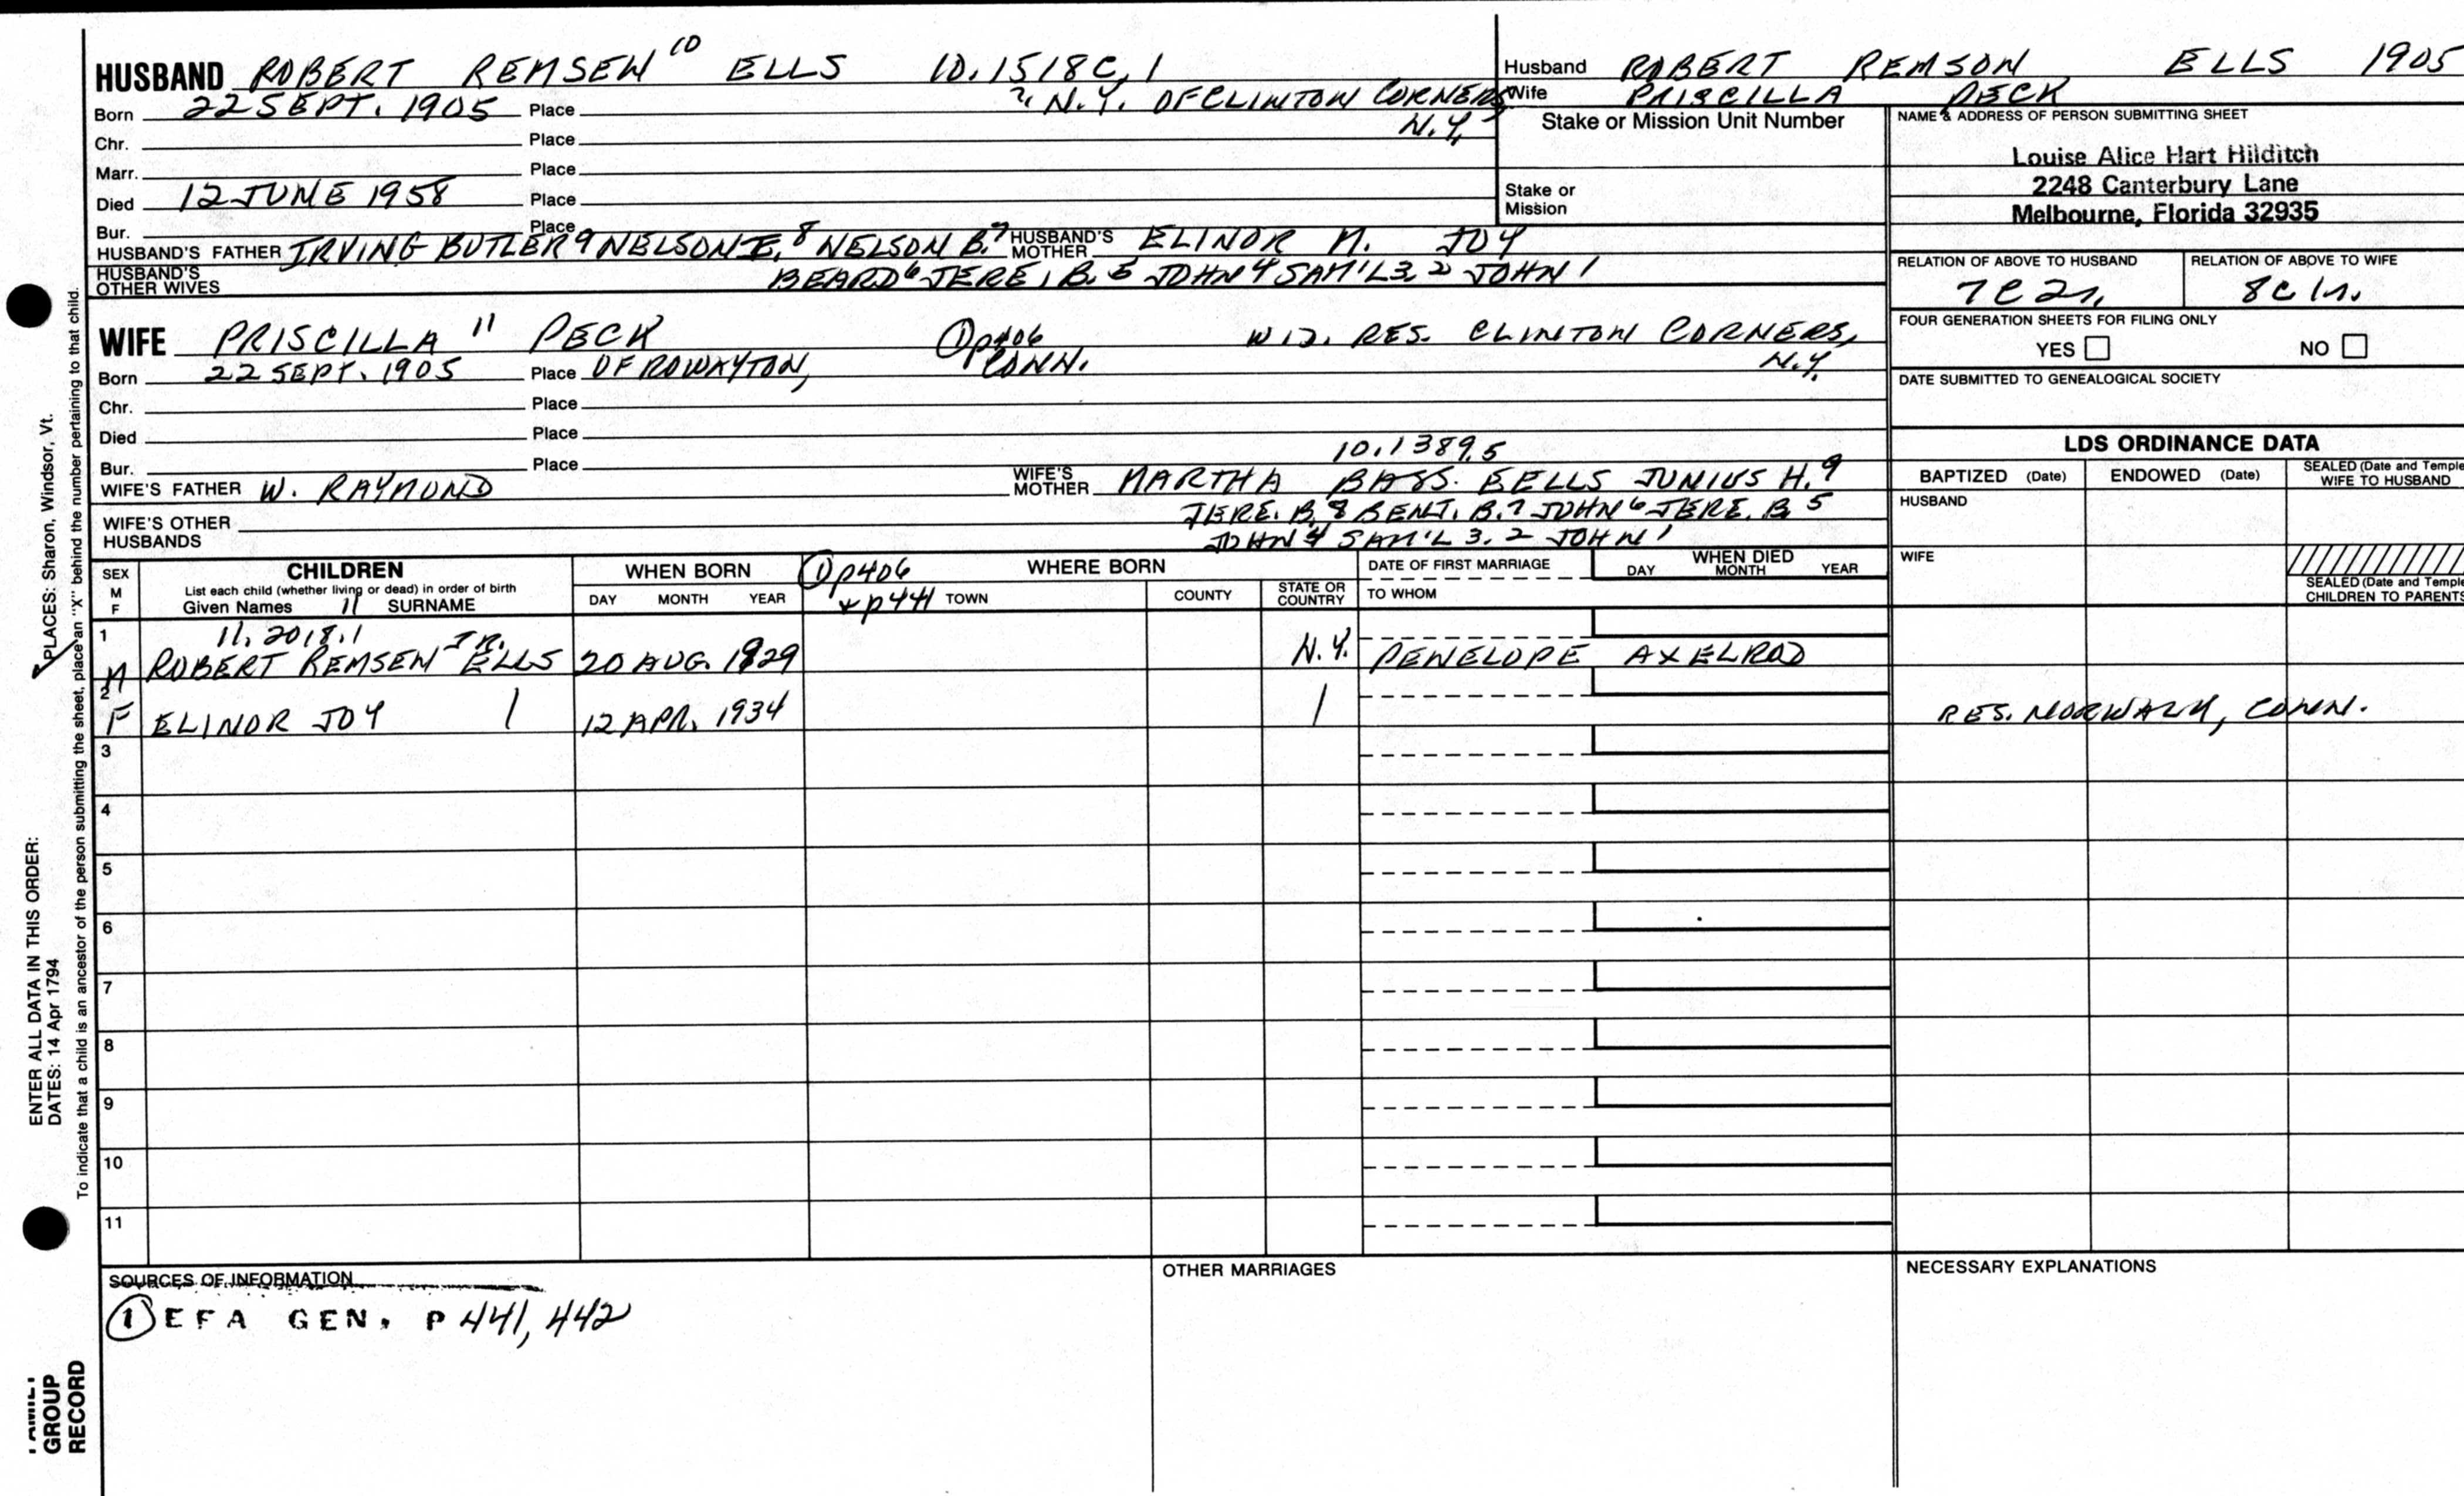 HUSBAND ROBERT REMSEN 10 ELLS 10.1518C.1
Born 22 SEPT. 1905 Place N.Y. OF CLINTON CORNERS
N.Y.
Chr. Place
Marr. Place
Died 12 JUNE 1958 Place
Bur. Place
HUSBAND'S FATHER IRVING BUTLER 9 NELSON E. 8 NELSON B. 7 HUSBAND'S MOTHER ELINOR M. JOY
HUSBAND'S OTHER WIVES BEARD 6 JERE. B. 5 JOHN 4 SAM'L 3, 2 JOHN 1
Husband ROBERT REMSON ELLS 1905
Wife PRISCILLA PECK
Stake or Mission Unit Number
Stake or
Mission
NAME & ADDRESS OF PERSON SUBMITTING SHEET
Louise Alice Hart Hilditch
2248 Canterbury Lane
Melbourne, Florida 32935
RELATION OF ABOVE TO HUSBAND RELATION OF ABOVE TO WIFE
7C 2r. 8C 1r.
FOUR GENERATION SHEETS FOR FILING ONLY
YES NO
DATE SUBMITTED TO GENEALOGICAL SOCIETY
WIFE PRISCILLA 11 PECK ① p406 WID. RES. CLINTON CORNERS,
N.Y.
Born 22 SEPT. 1905 Place OF ROWAYTON, CONN.
Chr. Place
Died Place
Bur. Place
10.1389.5
WIFE'S FATHER W. RAYMOND WIFE'S MOTHER MARTHA BASS. EELLS JUNIUS H. 9
JERE. B. 8 BENJ. B. 7 JOHN 6 JERE. B 5
JOHN 4 SAM'L 3, 2 JOHN 1
WIFE'S OTHER
HUSBANDS
LDS ORDINANCE DATA
BAPTIZED (Date) ENDOWED (Date) SEALED (Date and Temple
WIFE TO HUSBAND
HUSBAND
WIFE
SEALED (Date and Temple
CHILDREN TO PARENTS
SEX
M
F
CHILDREN
List each child (whether living or dead) in order of birth
Given Names 11 SURNAME
WHEN BORN
DAY MONTH YEAR
① p406
+ p441
WHERE BORN
TOWN COUNTY STATE OR COUNTRY
DATE OF FIRST MARRIAGE
TO WHOM
WHEN DIED
DAY MONTH YEAR
1 11.2018.1
M ROBERT REMSEN JR. ELLS 20 AUG. 1929 N.Y. PENELOPE AXELROD
2
F ELINOR JOY 12 APR. 1934 RES. NORWALK, CONN.
3
4
5
6
7
8
9
10
11
SOURCES OF INFORMATION
① EFA GEN. P 441, 442
OTHER MARRIAGES
NECESSARY EXPLANATIONS
ENTER ALL DATA IN THIS ORDER:
DATES: 14 Apr 1794
PLACES: Sharon, Windsor, Vt.
To indicate that a child is an ancestor of the person submitting the sheet, place an "X" behind the number pertaining to that child.
FAMILY
GROUP
RECORD